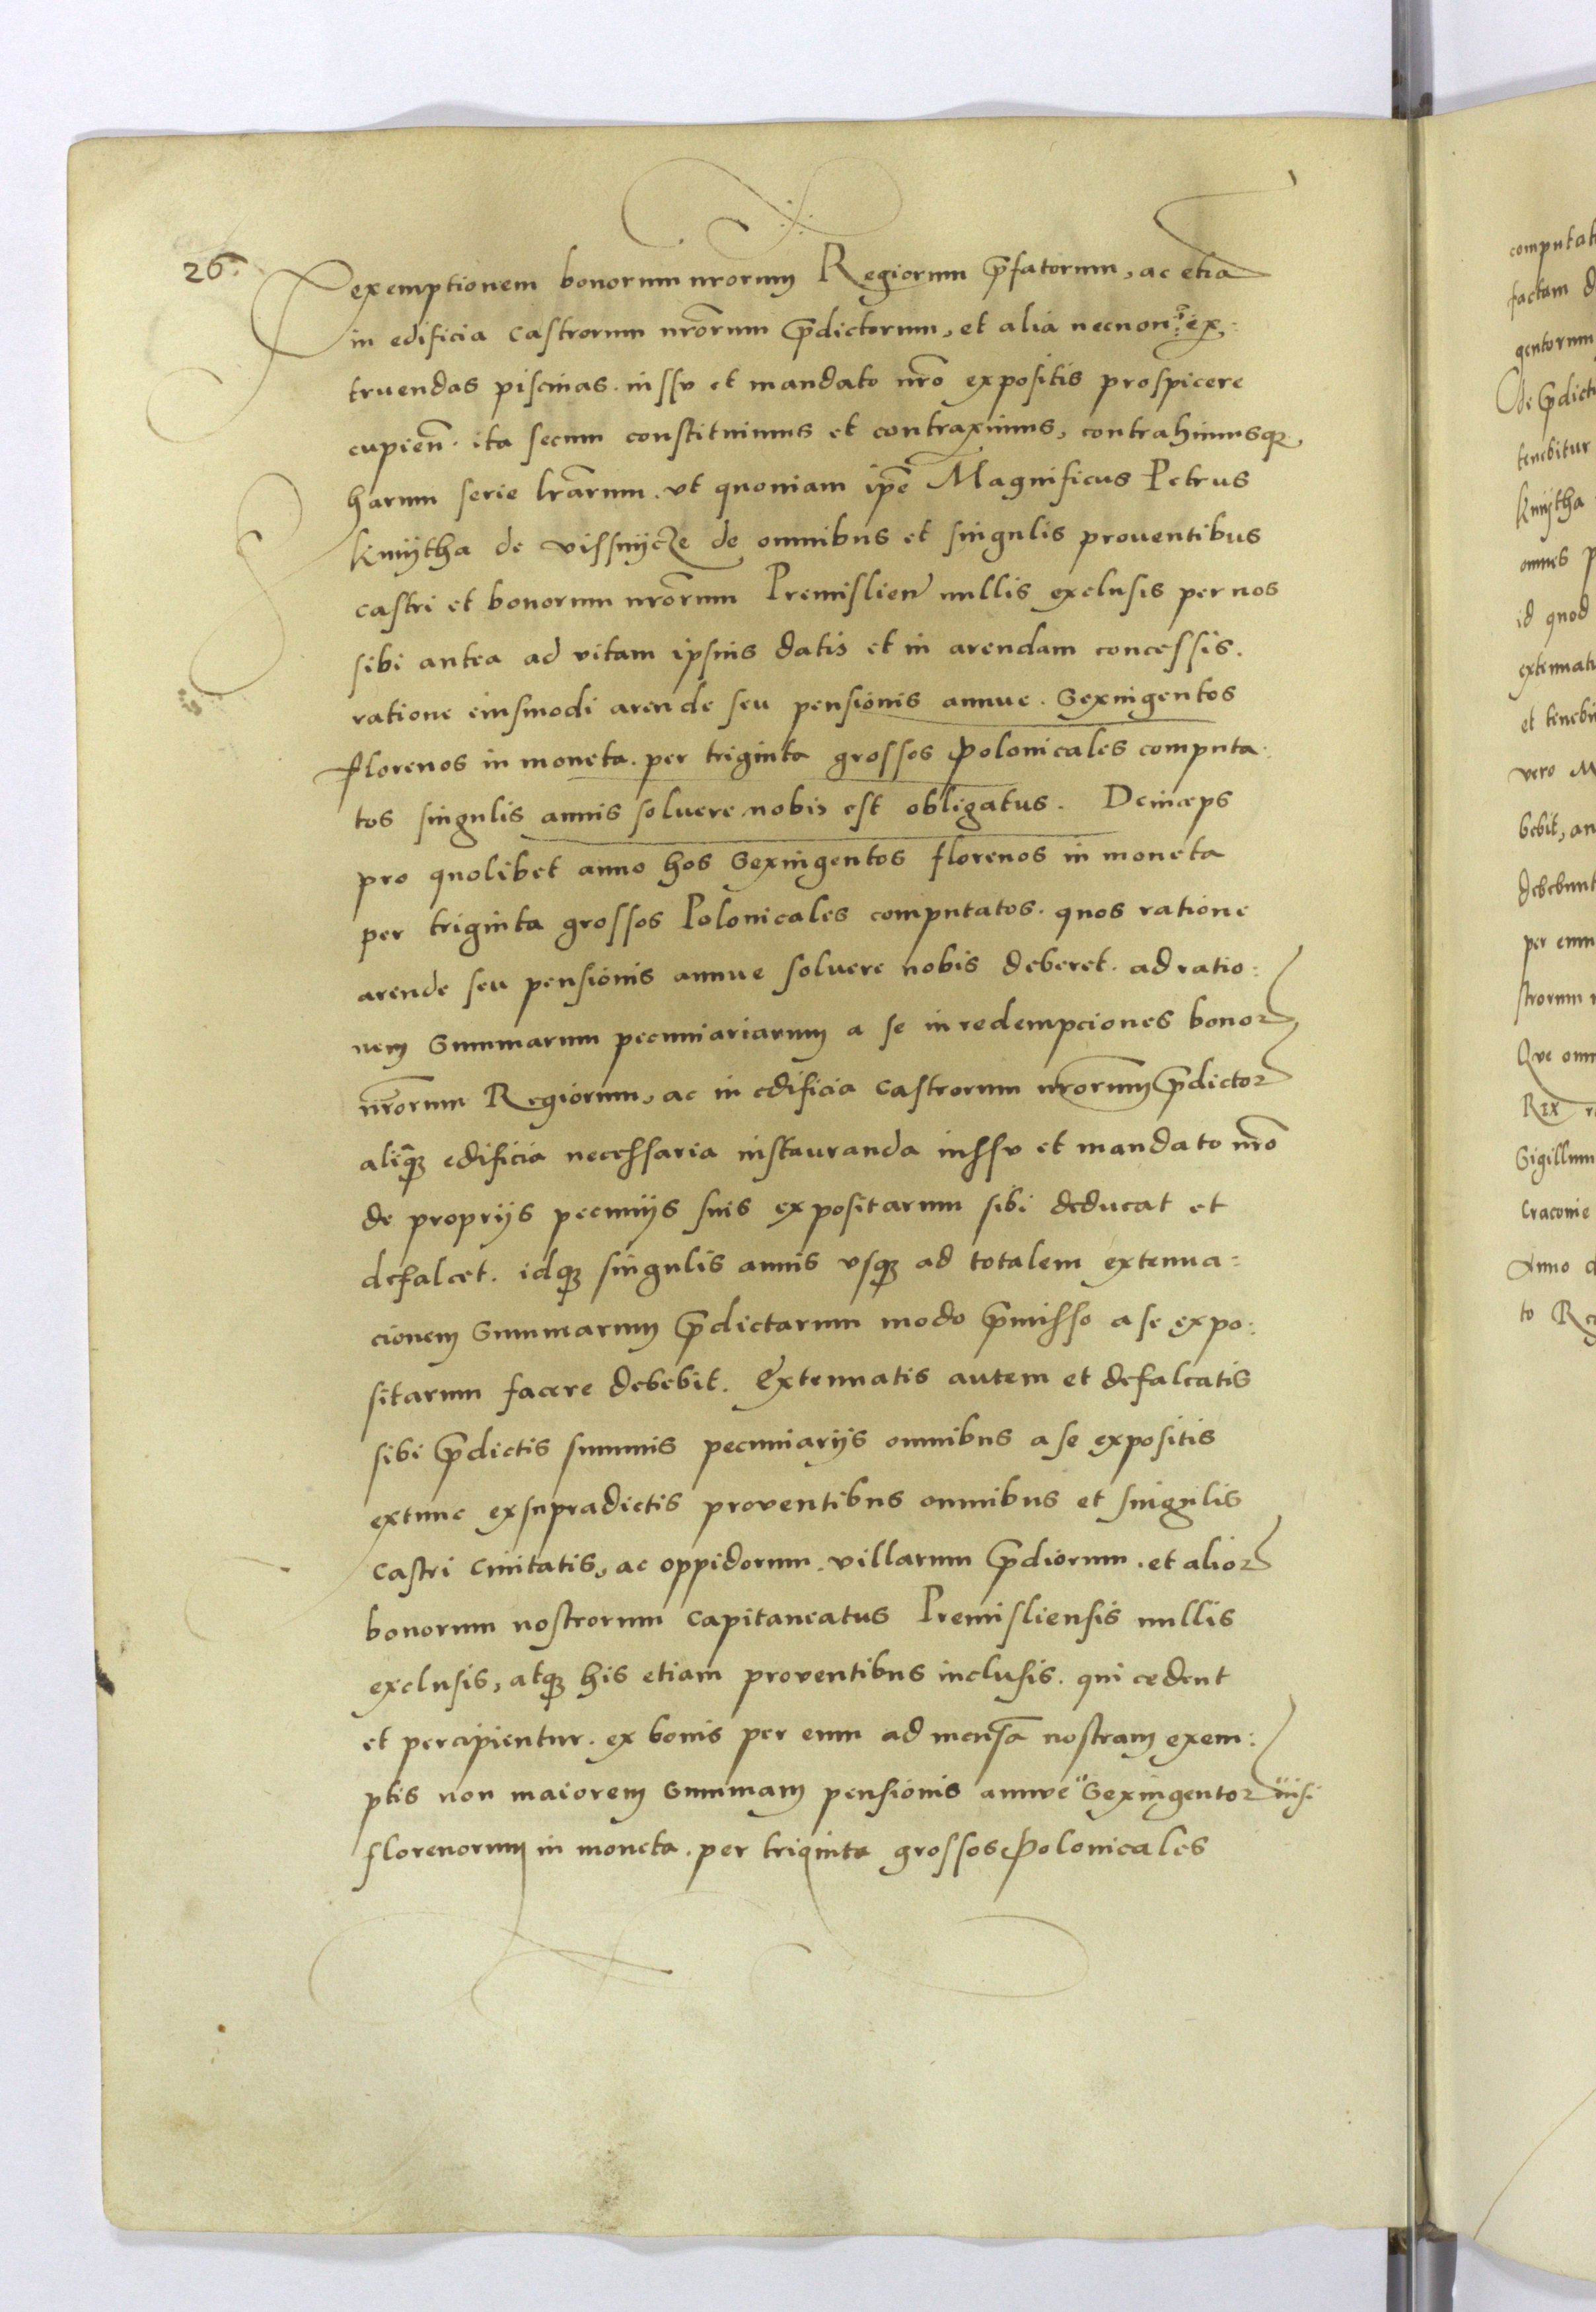 26.
exemptionem bonorum nrorum Regiorum pfatorum, ac etia
in edificia castrorum nrorum pdictorum, et alia necnon ex:
truendas piscinas. iussv et mandato nro expositis prospicere
cupien. ita secum constituimus et contraximus, contrahimusqȝ
harum serie lrarum. vt quoniam ipe Magnificus Petrus
kmijtha de vissnijcze de omnibus et singulis proventibus
castri et bonorum nrorum Premislien nullis exclusis per nos
sibi antea ad vitam ipsius datis et in arendam concessis.
ratione eiusmodi arende seu pensionis annue. Sexingentos
florenos in moneta. per triginta grossos polonicales computa:
tos singulis annis solvere nobis est obligatus. Deinceps
pro quolibet anno hos Sexingentos florenos in moneta
per triginta grossos Polonicales computatos. quos ratione
arende seu pensionis annue solvere nobis deberet. ad ratio:
nem Summarum pecuniariarum a se in redempciones bonoꝝ
nrorum Regiorum, ac in edificia castrorum nrorum pdictoꝝ
aliaqȝ edificia necessaria instauranda iussv et mandato nro
de proprijs pecunijs suis expositarum sibi deducat et
defalcet. idqȝ singulis annis vsqȝ ad totalem extenua:
cionem Summarum pdictarum modo pmisso a se expo:
sitarum facere debebit. Extenuatis autem et defalcatis
sibi pdictis summis pecuniarijs omnibus a se expositis
extunc ex supradictis proventibus omnibus et singulis
castri Civitatis, ac oppidorum. villarum pdiorum. et alioꝝ
bonorum nostrorum capitaneatus Premisliensis nullis
exclusis, atqȝ his etiam proventibus inclusis. qui cedent
et percipientur. ex bonis per eum ad mensa nostram exem:
ptis non maiorem Summam pensionis annve" Sexingentoꝝ "nisi
florenorum in moneta. per triginta grossos Polonicales
computat
factam d
gentorum
de pdict
tenebitur
kmijtha
omnes p
id quod
extenuat
et teneb
vero M
bebit, an
debebunt
per eum
strorum
Que om
REX
Sigillum
Cracovie
Anno
to Re